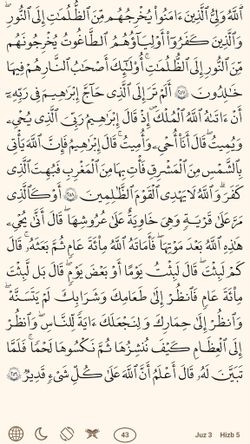 ٱللَّهُ وَلِىُّ ٱلَّذِينَ ءَامَنُوا۟ يُخْرِجُهُم مِّنَ ٱلظُّلُمَـٰتِ إِلَى ٱلنُّورِ ۖ
وَٱلَّذِينَ كَفَرُوٓا۟ أَوْلِيَآؤُهُمُ ٱلطَّـٰغُوتُ يُخْرِجُونَهُم
مِّنَ ٱلنُّورِ إِلَى ٱلظُّلُمَـٰتِ ۗ أُو۟لَـٰٓئِكَ أَصْحَـٰبُ ٱلنَّارِ ۖ هُمْ فِيهَا
خَـٰلِدُونَ ٢٥٧ أَلَمْ تَرَ إِلَى ٱلَّذِى حَآجَّ إِبْرَٰهِـۧمَ فِى رَبِّهِۦٓ
أَنْ ءَاتَىٰهُ ٱللَّهُ ٱلْمُلْكَ إِذْ قَالَ إِبْرَٰهِـۧمُ رَبِّىَ ٱلَّذِى يُحْىِۦ
وَيُمِيتُ قَالَ أَنَا۠ أُحْىِۦ وَأُمِيتُ ۖ قَالَ إِبْرَٰهِـۧمُ فَإِنَّ ٱللَّهَ يَأْتِى
بِٱلشَّمْسِ مِنَ ٱلْمَشْرِقِ فَأْتِ بِهَا مِنَ ٱلْمَغْرِبِ فَبُهِتَ ٱلَّذِى
كَفَرَ ۗ وَٱللَّهُ لَا يَهْدِى ٱلْقَوْمَ ٱلظَّـٰلِمِينَ ٢٥٨ أَوْ كَٱلَّذِى
مَرَّ عَلَىٰ قَرْيَةٍ وَهِىَ خَاوِيَةٌ عَلَىٰ عُرُوشِهَا قَالَ أَنَّىٰ يُحْىِۦ
هَـٰذِهِ ٱللَّهُ بَعْدَ مَوْتِهَا ۖ فَأَمَاتَهُ ٱللَّهُ مِا۟ئَةَ عَامٍ ثُمَّ بَعَثَهُۥ ۖ قَالَ
كَمْ لَبِثْتَ ۖ قَالَ لَبِثْتُ يَوْمًا أَوْ بَعْضَ يَوْمٍ ۖ قَالَ بَل لَّبِثْتَ
مِا۟ئَةَ عَامٍ فَٱنظُرْ إِلَىٰ طَعَامِكَ وَشَرَابِكَ لَمْ يَتَسَنَّهْ ۖ
وَٱنظُرْ إِلَىٰ حِمَارِكَ وَلِنَجْعَلَكَ ءَايَةً لِّلنَّاسِ ۖ وَٱنظُرْ
إِلَى ٱلْعِظَامِ كَيْفَ نُنشِزُهَا ثُمَّ نَكْسُوهَا لَحْمًا ۚ فَلَمَّا
تَبَيَّنَ لَهُۥ قَالَ أَعْلَمُ أَنَّ ٱللَّهَ عَلَىٰ كُلِّ شَىْءٍ قَدِيرٌ ٢٥٩
43 Juz 3 Hizb 5